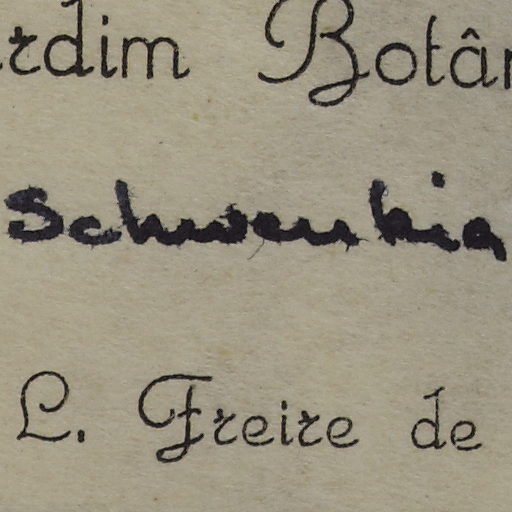 rdim Botân
Schwenkia
L. Freire de